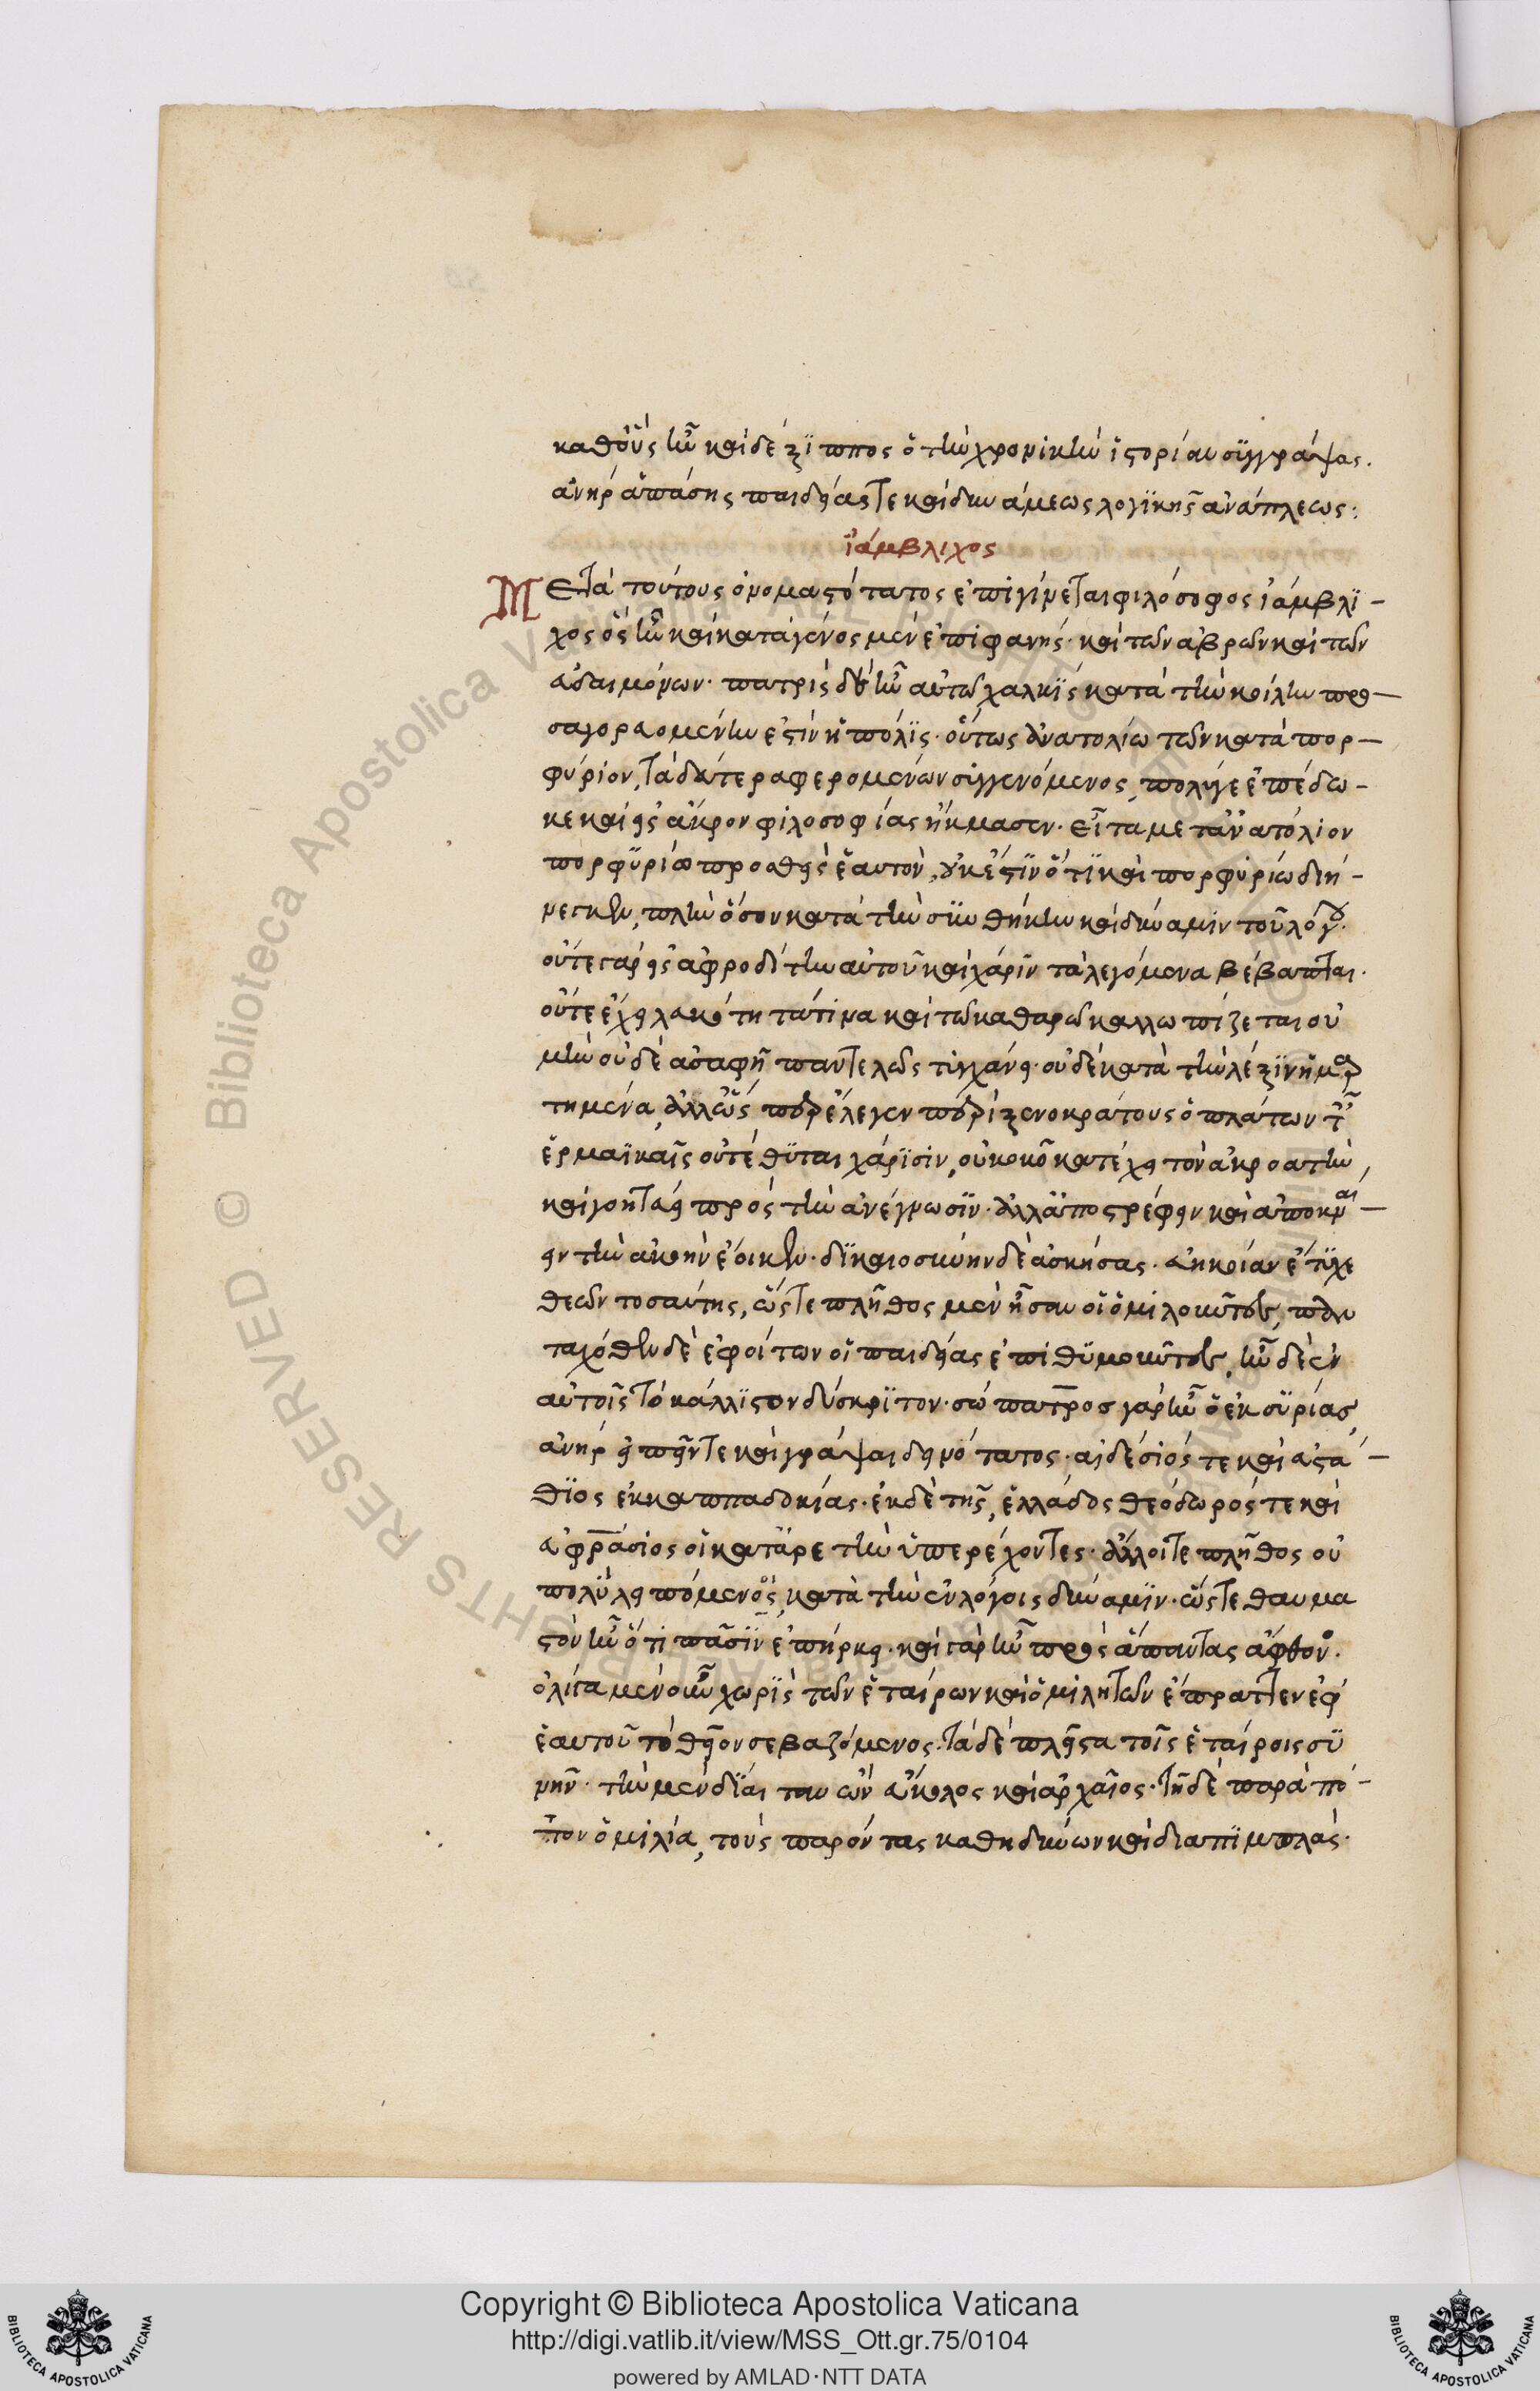 καθ' οὓς ἦν καὶ δέξιππος ὁ τὴν χρονικὴν ἱστορίαν συγγράψας.
ἀνὴρ ἁπάσης παιδείας τε καὶ δυνάμεως λογικῆς ἀνάπλεως:
ἰάμβλιχος
Μετὰ τούτους ὀνομαστότατος ἐπιγίνεται φιλόσοφος ἰάμβλι-
χος ὃς ἦν καὶ κατὰ γένος μὲν ἐπιφανὴς· καὶ τῶν ἁβρῶν καὶ τῶν
εὐδαιμόνων· πατρὶς δὲ ἦν αὐτῷ χαλκὶς κατὰ τὴν κοίλην προ-
σαγορευομένην ἐστὶν ἡ πόλις· οὗτος ἀνατολίῳ τῶν κατὰ πορ-
φύριον, τὰ δεύτερα φερομένων συγγενόμενος, πολύ γε ἐπέδω-
κε καὶ εἰς ἄκρον φιλοσοφίας ἤκμασεν· εἶτα μετ' ἀνατόλιον
πορφυρίῳ προσθεὶς ἑαυτὸν, οὐκ ἔστιν ὅτι καὶ πορφυρίου διή-
νεγκεν, πλὴν ὅσον κατὰ τὴν συνθήκην καὶ δύναμιν τοῦ λόγου·
οὔτε γὰρ εἰς ἀφροδίτην αὐτοῦ καὶ χάριν τὰ λεγόμενα βέβαπται·
οὔτε ἔχει λευκότητά τινα καὶ τῷ καθαρῷ καλλωπίζεται οὐ
μὴν οὐδὲ ἀσαφῆ παντελῶς τυγχάνει· οὐδὲ κατὰ τὴν λέξιν ἡμαρ
τημένα, ἀλλ' ὥσπερ ἔλεγεν περὶ ξενοκράτους ὁ πλάτων ταῖς
ἑρμαϊκαῖς οὐ τέθυται χάρισιν, οὔκουν κατέχει τὸν ἀκροατὴν
καὶ γοητεύει πρὸς τὴν ἀνέγνωσιν· ἀλλ' ἀποστρέφειν καὶ ἀποκναί-
ειν τὴν ἀκοὴν ἔοικεν· δικαιοσύνην δὲ ἀσκήσας· εὐηκοΐαν ἔτυχε
θεῶν τοσαύτης, ὥστε πλῆθος μὲν ἦσαν οἱ ὁμιλοῦντες, παν
ταχόθεν δὲ ἐφοίτων οἱ παιδείας ἐπιθυμοῦντες, ἦν δὲ ἐν
αὐτοῖς τὸ κάλλιστον δύσκριτον· σώπατρος γὰρ ἦν ὁ ἐκ συρίας,
ἀνὴρ εἰπεῖν τε καὶ γράψαι δεινότατος· αἰδέσιός τε καὶ εὐστά-
θιος ἐκ καππαδοκίας· ἐκ δὲ τῆς, ἑλλάδος θεόδωρός τε καὶ
εὐφράσιος οἱ κατ' ἀρετὴν ὑπερέχοντες· ἄλλοι τε πλῆθος οὐ
πολὺ λειπόμενος, κατὰ τὴν ἐν λόγοις δύναμιν· ὥστε θαυμα
στὸν ἦν ὅτι πᾶσιν ἐπήρκει· καὶ γὰρ ἦν πρὸς ἅπαντας ἄφθονος.
ὀλίγα μὲν οὖν χωρὶς τῶν ἑταίρων καὶ ὁμιλητῶν ἔπραττεν ἐφ'
ἑαυτοῦ τὸ θεῖον σεβαζόμενος· τὰ δὲ πλεῖστα τοῖς ἑταίροις συ
νῆν· τὴν μὲν δίαιταν ὢν εὔκολος καὶ ἀρχαῖος· τῇ δὲ παρὰ πό-
τον ὁμιλίᾳ, τοὺς παρόντας καθηδύνων καὶ διαπιμπλὰς·
Copyright © Biblioteca Apostolica Vaticana
http://digi.vatlib.it/view/MSS_Ott.gr.75/0104
powered by AMLAD·NTT DATA